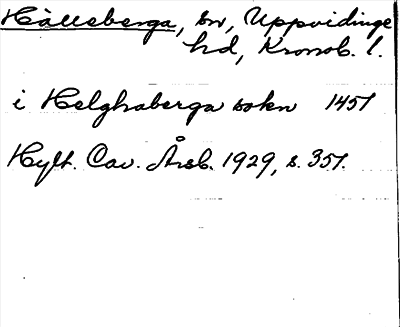 Hälleberga, sn, Uppvidinge
hd, Kronob. l.
i Helghaberga sokn 1457
Hylt. Cav. Årsb. 1929, s. 357.